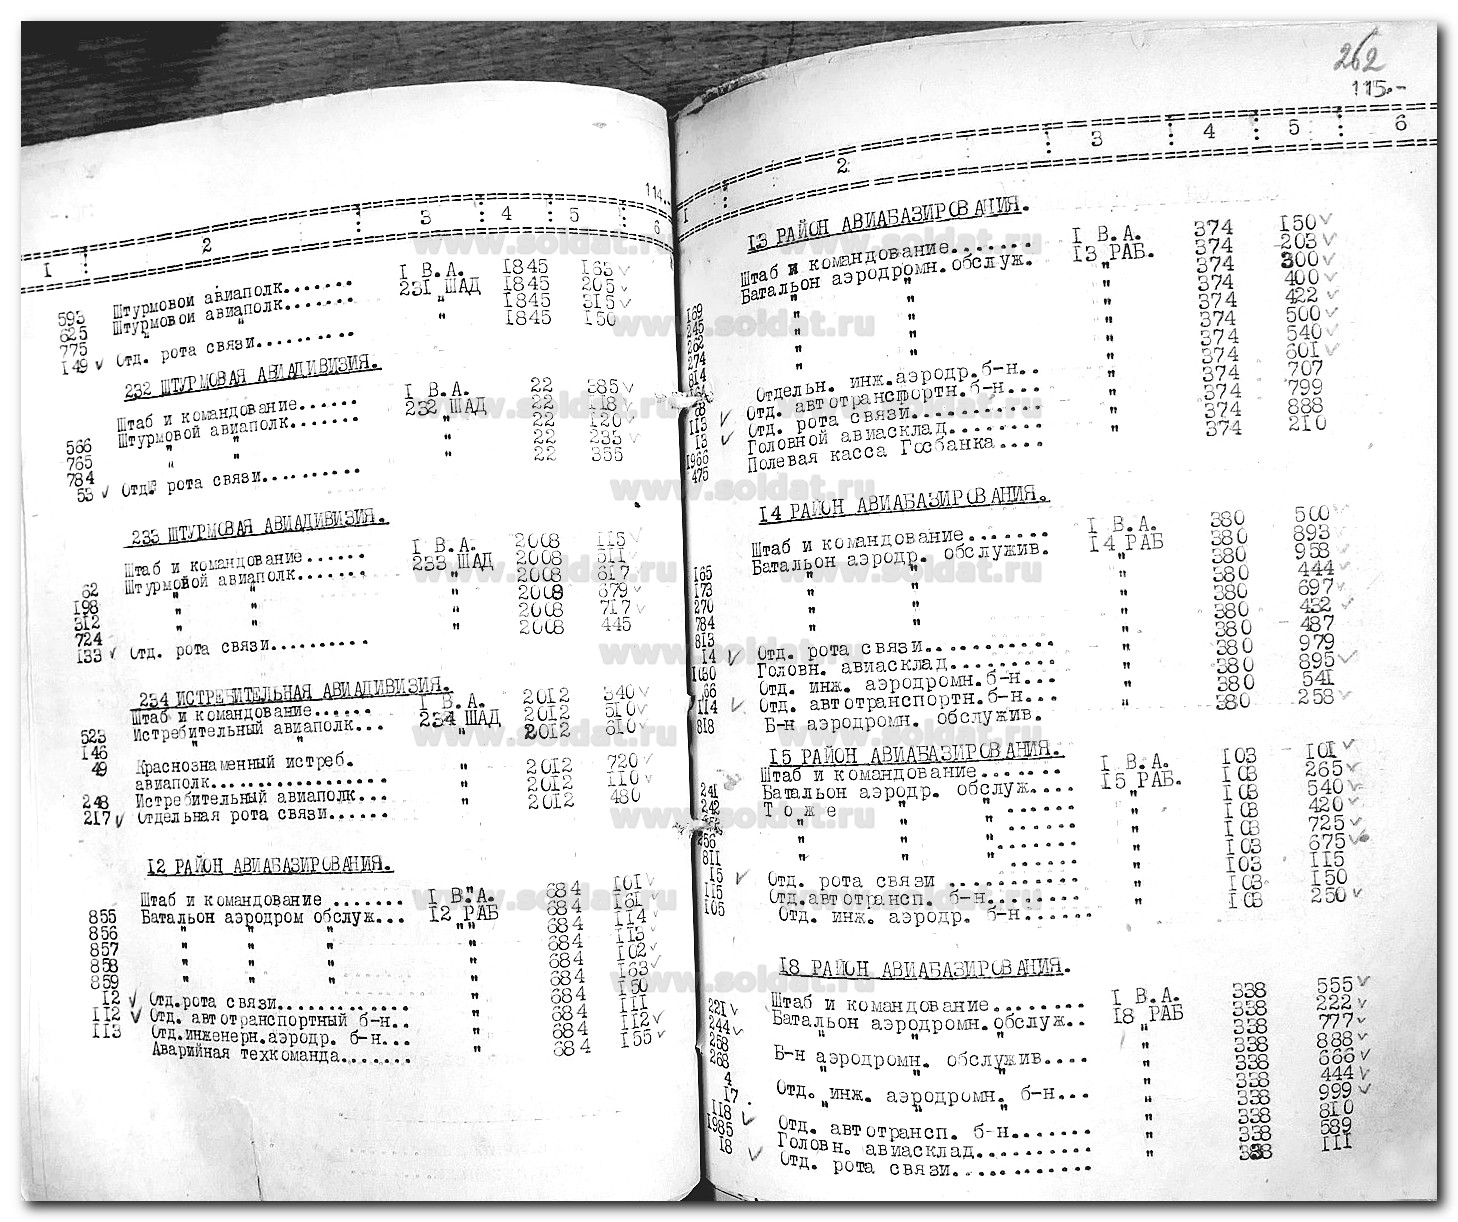 114.
1 2 3 4 5 6
I В.А. 1845 165
593 Штурмовой авиаполк....... 231 ШАД 1845 205
625 Штурмовой авиаполк....... " 1845 315
775 " " " 1845 150
149 Отд. рота связи..........
232 ШТУРМОВАЯ АВИАДИВИЗИЯ.
Штаб и командование...... I В.А. 22 385
566 Штурмовой авиаполк....... 232 ШАД 22 418
765 " " " 22 120
784 " " " 22 233
53 Отд. рота связи.......... " 22 355
233 ШТУРМОВАЯ АВИАДИВИЗИЯ.
Штаб и командование...... I В.А. 2008 115
62 Штурмовой авиаполк....... 233 ШАД 2008 511
198 " " " 2008 617
312 " " " 2008 679
724 " " " 2008 717
133 Отд. рота связи.......... " 2008 445
234 ИСТРЕБИТЕЛЬНАЯ АВИАДИВИЗИЯ.
Штаб и командование...... I В.А. 2012 340
523 Истребительный авиаполк... 234 ШАД 2012 510
146 " " " 2012 610
49 Краснознаменный истреб.
авиаполк................. " 2012 720
248 Истребительный авиаполк... " 2012 110
217 Отдельная рота связи...... " 2012 480
12 РАЙОН АВИАБАЗИРОВАНИЯ.
Штаб и командование ....... I В.А. 684 101
855 Батальон аэродром обслуж... 12 РАБ 684 161
856 " " " " 684 114
857 " " " " 684 115
858 " " " " 684 102
859 " " " " 684 163
12 Отд.рота связи.............. " 684 150
112 Отд. автотранспортный б-н.. " 684 111
113 Отд.инженерн.аэродр. б-н... " 684 112
Аварийная техкоманда....... " 684 155
262
115.-
1 2 3 4 5 6
13 РАЙОН АВИАБАЗИРОВАНИЯ.
Штаб и командование....... I В.А. 374 150
169 Батальон аэродромн.обслуж. 13 РАБ. 374 203
245 " " " 374 300
262 " " " 374 400
274 " " " 374 422
814 " " " 374 500
Отдельн. инж.аэродр.б-н.. " 374 540
113 Отд. автотранспортн.б-н... " 374 601
13 Отд. рота связи........... " 374 707
1966 Головной авиасклад........ " 374 799
475 Полевая касса Госбанка.... " 374 888
374 210
14 РАЙОН АВИАБАЗИРОВАНИЯ.
Штаб и командование....... I В.А. 380 500
165 Батальон аэродр. обслужив. 14 РАБ 380 893
173 " " " 380 958
270 " " " 380 444
784 " " " 380 697
813 " " " 380 432
14 Отд. рота связи........... " 380 487
1030 Головн. авиасклад......... " 380 979
66 Отд. инж. аэродромн.б-н... " 380 895
114 Отд. автотранспортн.б-н... " 380 541
818 Б-н аэродромн. обслужив. " 380 258
15 РАЙОН АВИАБАЗИРОВАНИЯ.
Штаб и командование....... I В.А. 103 101
241 Батальон аэродр. обслуж..... 15 РАБ. 103 265
242 Т о ж е " " ...... " 103 540
" " " ...... " 103 420
256 " " " ...... " 103 725
811 " " " ...... " 103 675
15 Отд. рота связи .......... " 103 115
115 Отд.автотрансп. б-н....... " 103 150
105 Отд. инж. аэродр. б-н...... " 103 250
18 РАЙОН АВИАБАЗИРОВАНИЯ.
Штаб и командование....... I В.А. 338 555
221 Батальон аэродромн.обслуж.. 18 РАБ 338 222
244 " " " 338 777
258 Б-н аэродромн. обслужив.... " 338 888
268 " " " 338 666
4 Отд. инж. аэродромн. б-н... " 338 444
17 " " " " 338 999
118 Отд. автотрансп. б-н....... " 338 810
1985 Головн. авиасклад.......... " 338 589
18 Отд. рота связи............ " 338 111
www.soldat.ru